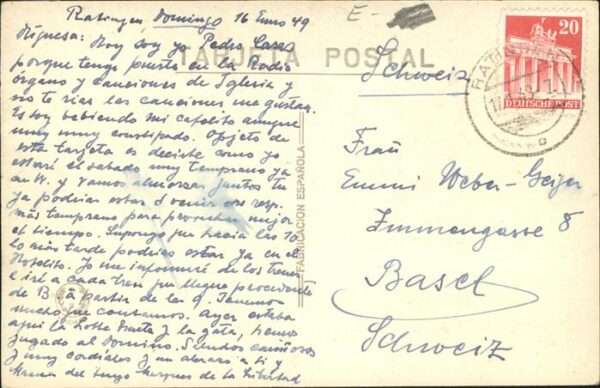 Ratingen, Domingo 16 Enero 49
Riquesa: Hoy soy yo Pedro
porque tengo puesto en la Radio
órgano y canciones de Iglesia y
no te rias las canciones me gustan.
Estoy bebiendo mi cafelito aunque
muy muy constipado. Objeto de
esta tarjeta es decirte como yo
estaré el sábado muy temprano ya
en W. y vamos almorzar juntos tu
ya podrias estar
más temprano para
el tiempo. Supongo que hacia las 10
lo más tarde podrias estar ya en el
Yo me informaré de los trenes
e iré a cada tren que llegue procedente
de B. a partir de las 9. Tenemos
mucho que contarnos. Ayer estaba
aqui la Lotte y la gata, hemos
jugado al Domino. Saludos cariñosos
y muy cordiales y un abrazo a ti y
del Marques de la Libertad
TARJETA POSTAL
FABRICACION ESPAÑOLA
E -
20
DEUTSCHE POST
RATINGEN
17.1.49
Schweiz
Frau
Emmi Weber-Geiger
Immengasse 8
Basel
Schweiz